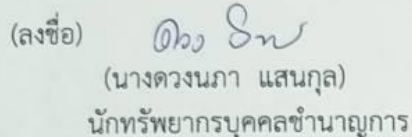 (ลงชื่อ)
(นางดวงนภา แสนกุล)
นักทรัพยากรบุคคลชำนาญการ